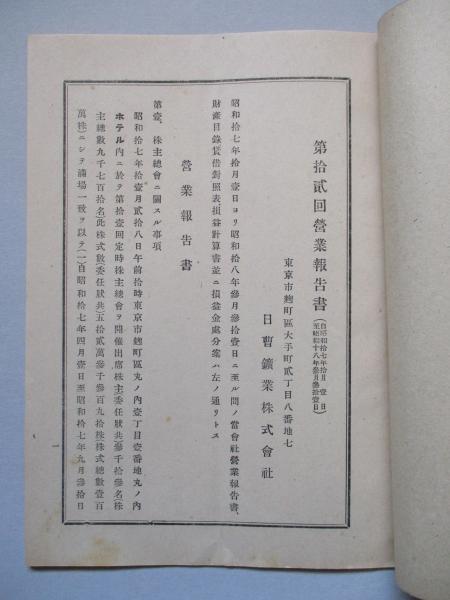 第拾貳回營業報告書
(自昭和十七年拾月壹日
至昭和十八年參月參拾壹日)
東京市麴町區大手町貳丁目八番地七
日曹鑛業株式會社
昭和拾七年拾月壹日ヨリ昭和拾八年參月參拾壹日ニ至ル間ノ當會社營業報告書、
財產目錄貸借對照表損益計算書並ニ損益金處分案ハ左ノ通リトス
營業報告書
第壹、株主總會ニ關スル事項
昭和拾七年拾壹月貳拾八日午前拾時東京市麴町區丸ノ內壹丁目壹番地丸ノ內
ホテル內ニ於テ第拾壹回定時株主總會ヲ開催出席株主(委任狀共)參千拾參名(株
主總數九千七百拾名)此株式數(委任狀共)五拾貳萬參千參百九拾株(株式總數壹百
萬株)ニシテ滿場一致ヲ以テ(一)自昭和拾七年四月壹日至昭和拾七年九月參拾日
一